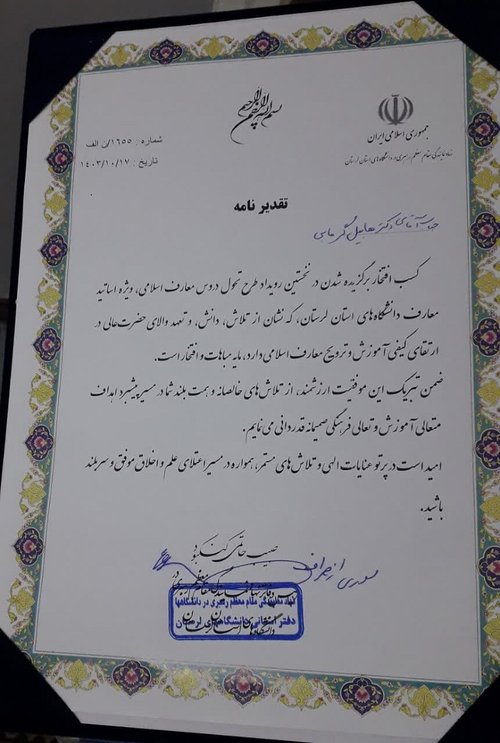 بسم الله الرحمن الرحیم
جمهوری اسلامی ایران
نهاد نمایندگی مقام معظم رهبری در دانشگاه‌های استان لرستان
شماره : ۱۶۵۵/ن الف
تاریخ : ۱۴۰۳/۱۰/۱۷
تقدیر نامه
جناب آقای دکتر هابیل گرمابی
کسب افتخار برگزیده شدن در نخستین رویداد طرح تحول دروس معارف اسلامی، ویژه اساتید
معارف دانشگاه‌های استان لرستان، که نشان از تلاش، دانش، و تعهد والای حضرت‌عالی در
ارتقای کیفی آموزش و ترویج معارف اسلامی دارد، مایه مباهات و افتخار است.
ضمن تبریک این موفقیت ارزشمند، از تلاش‌های خالصانه و همت بلند شما در مسیر پیشبرد اهداف
متعالی آموزش و تعالی فرهنگی صمیمانه قدردانی می‌نمایم.
امید است در پرتو عنایات الهی و تلاش‌های مستمر، همواره در مسیر اعتلای علم و اخلاق موفق و سربلند
باشید.
نهاد نمایندگی مقام معظم رهبری در دانشگاهها
دفتر استانی دانشگاههای لرستان